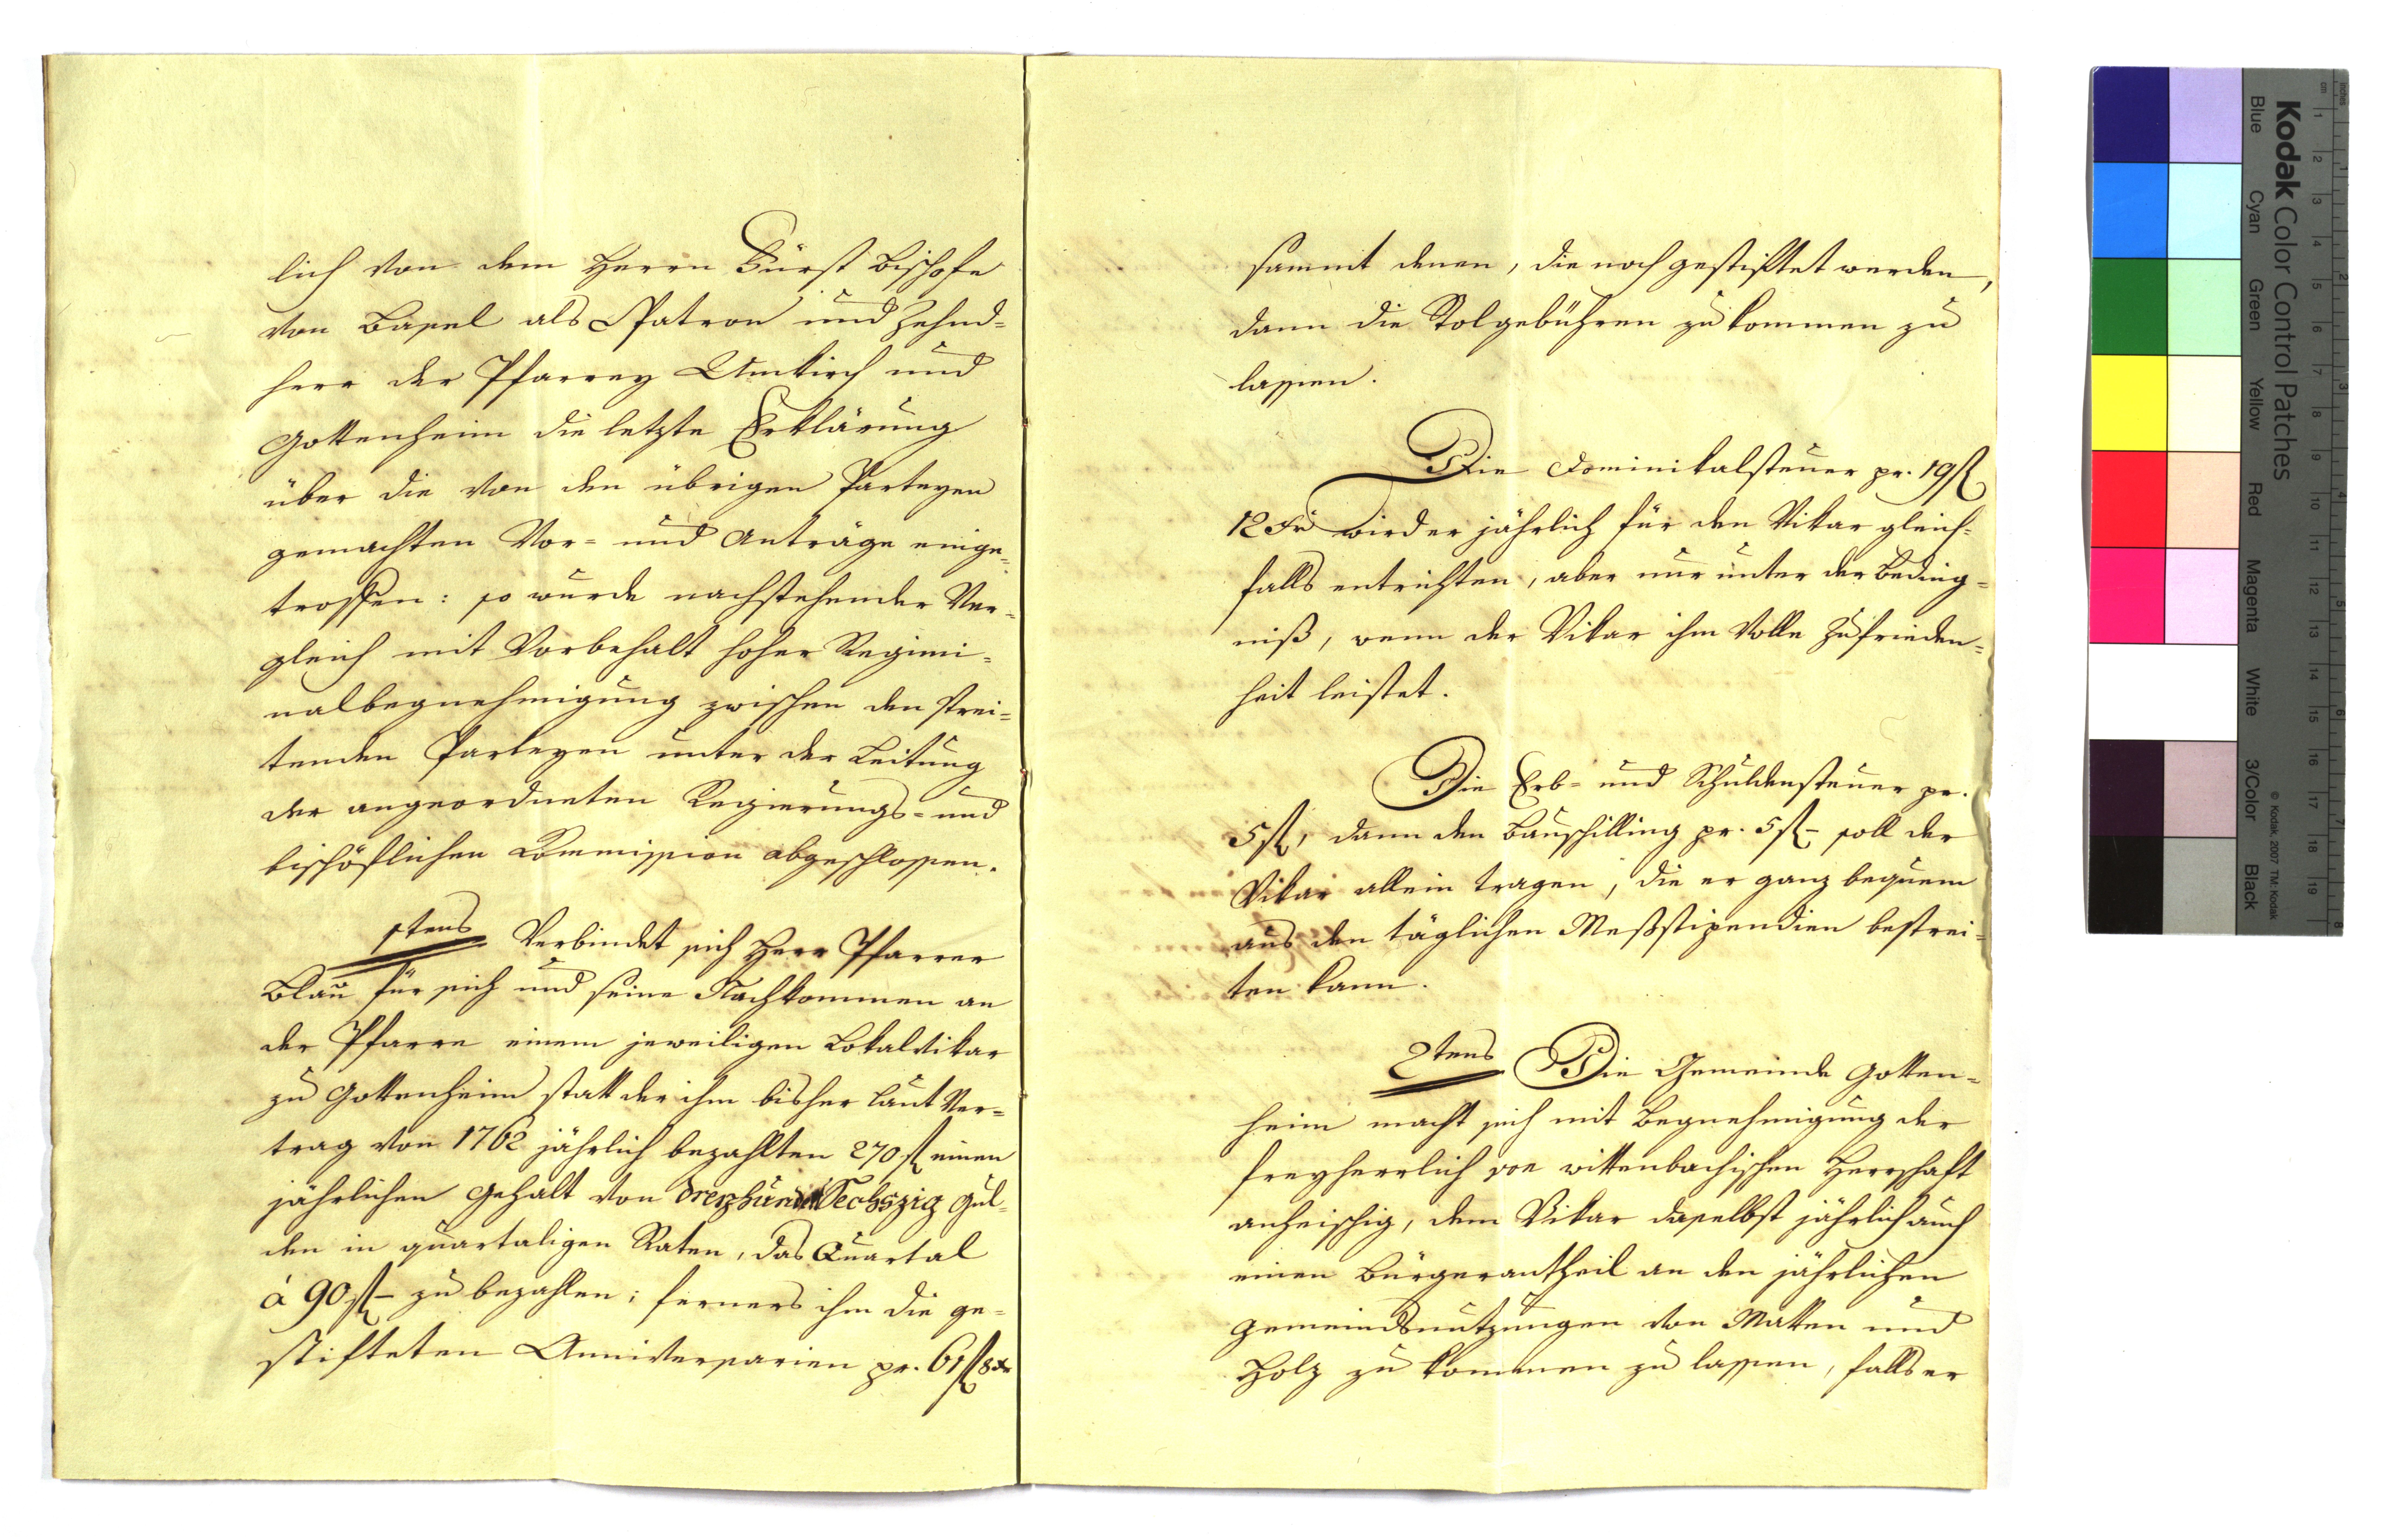 lich von dem Herrn Fürst Bischofe
von Basel als Patron und Zehnd=
herr der Pfarrey Umkirch und
Gottenheim die letzte Erklärung
über die von den übrigen Parteyen
gemachten Vor= und Anträge einge=
troffen: so wurde nachstehender Ver=
gleich mit Vorbehalt hoher Regimi=
nalbegnehmigung zwischen den strei=
tenden Parteyen unter der Leitung
der angeordneten Regierungs= und
bischöflichen Kommission abgeschlossen.
1tens Verbindet sich Herr Pfarrer
Blau für sich und seine Nachkommen an
der Pfarre einem jeweiligen Lokalvikar
zu Gottenheim statt der ihm bisher laut Ver=
trag von 1762 jährlich bezahlten 270 fl einen
jährlichen Gehalt von dreyhundert Sechszig Gul=
den in quartaligen Raten, das Quartal
á 90 fl – zu bezahlen; ferners ihm die ge=
stifteten Anniversarien pr. 61 fl 8 xr
sammt denen, die noch gestiftet werden,
dann die Stolgebühren zu kommen zu
lassen.
Die Dominikalsteuer pr. 19 fl
12 xr wird er jährlich für den Vikar gleich=
falls entrichten, aber nur unter der Beding=
niß, wenn der Vikar ihm volle Zufrieden=
heit leistet.
Die Erb= und Schuldensteuer pr.
5 fl, dann den Bauschilling pr. 5 fl – soll der
Vikar allein tragen, die er ganz bequem
aus den täglichen Meßstipendien bestrei=
ten kann.
2tens Die Gemeinde Gotten=
heim macht sich mit Begnehmigung der
freyherrlich von wittenbachischen Herrschaft
anheischig, dem Vikar daselbst jährlich auch
einen Bürgerantheil an den jährlichen
Gemeindsnutzungen von Matten und
Holz zu kommen zu lassen, falls er
Kodak Color Control Patches
Blue
Cyan
Green
Yellow
Red
Magenta
White
3/Color
Black
© Kodak, 2007 TM: Kodak
cm 1 2 3 4 5 6 7 8 9 10 11 12 13 14 15 16 17 18 19
inches 1 2 3 4 5 6 7 8